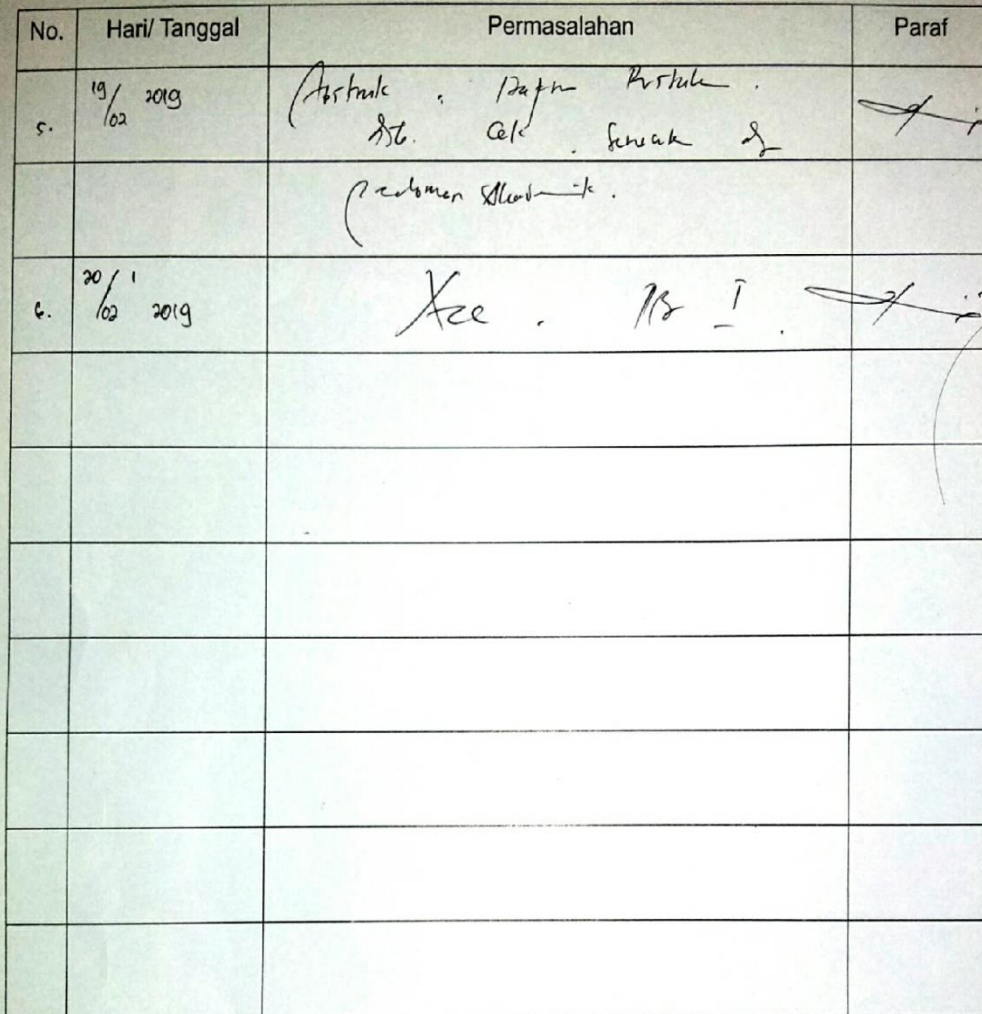 No. Hari/ Tanggal Permasalahan Paraf
5. 19/02 2019 Abstrak . Daftar Pustaka .
Cek . Sesuai
pedoman Akademik .
6. 20/02 2019 Acc .